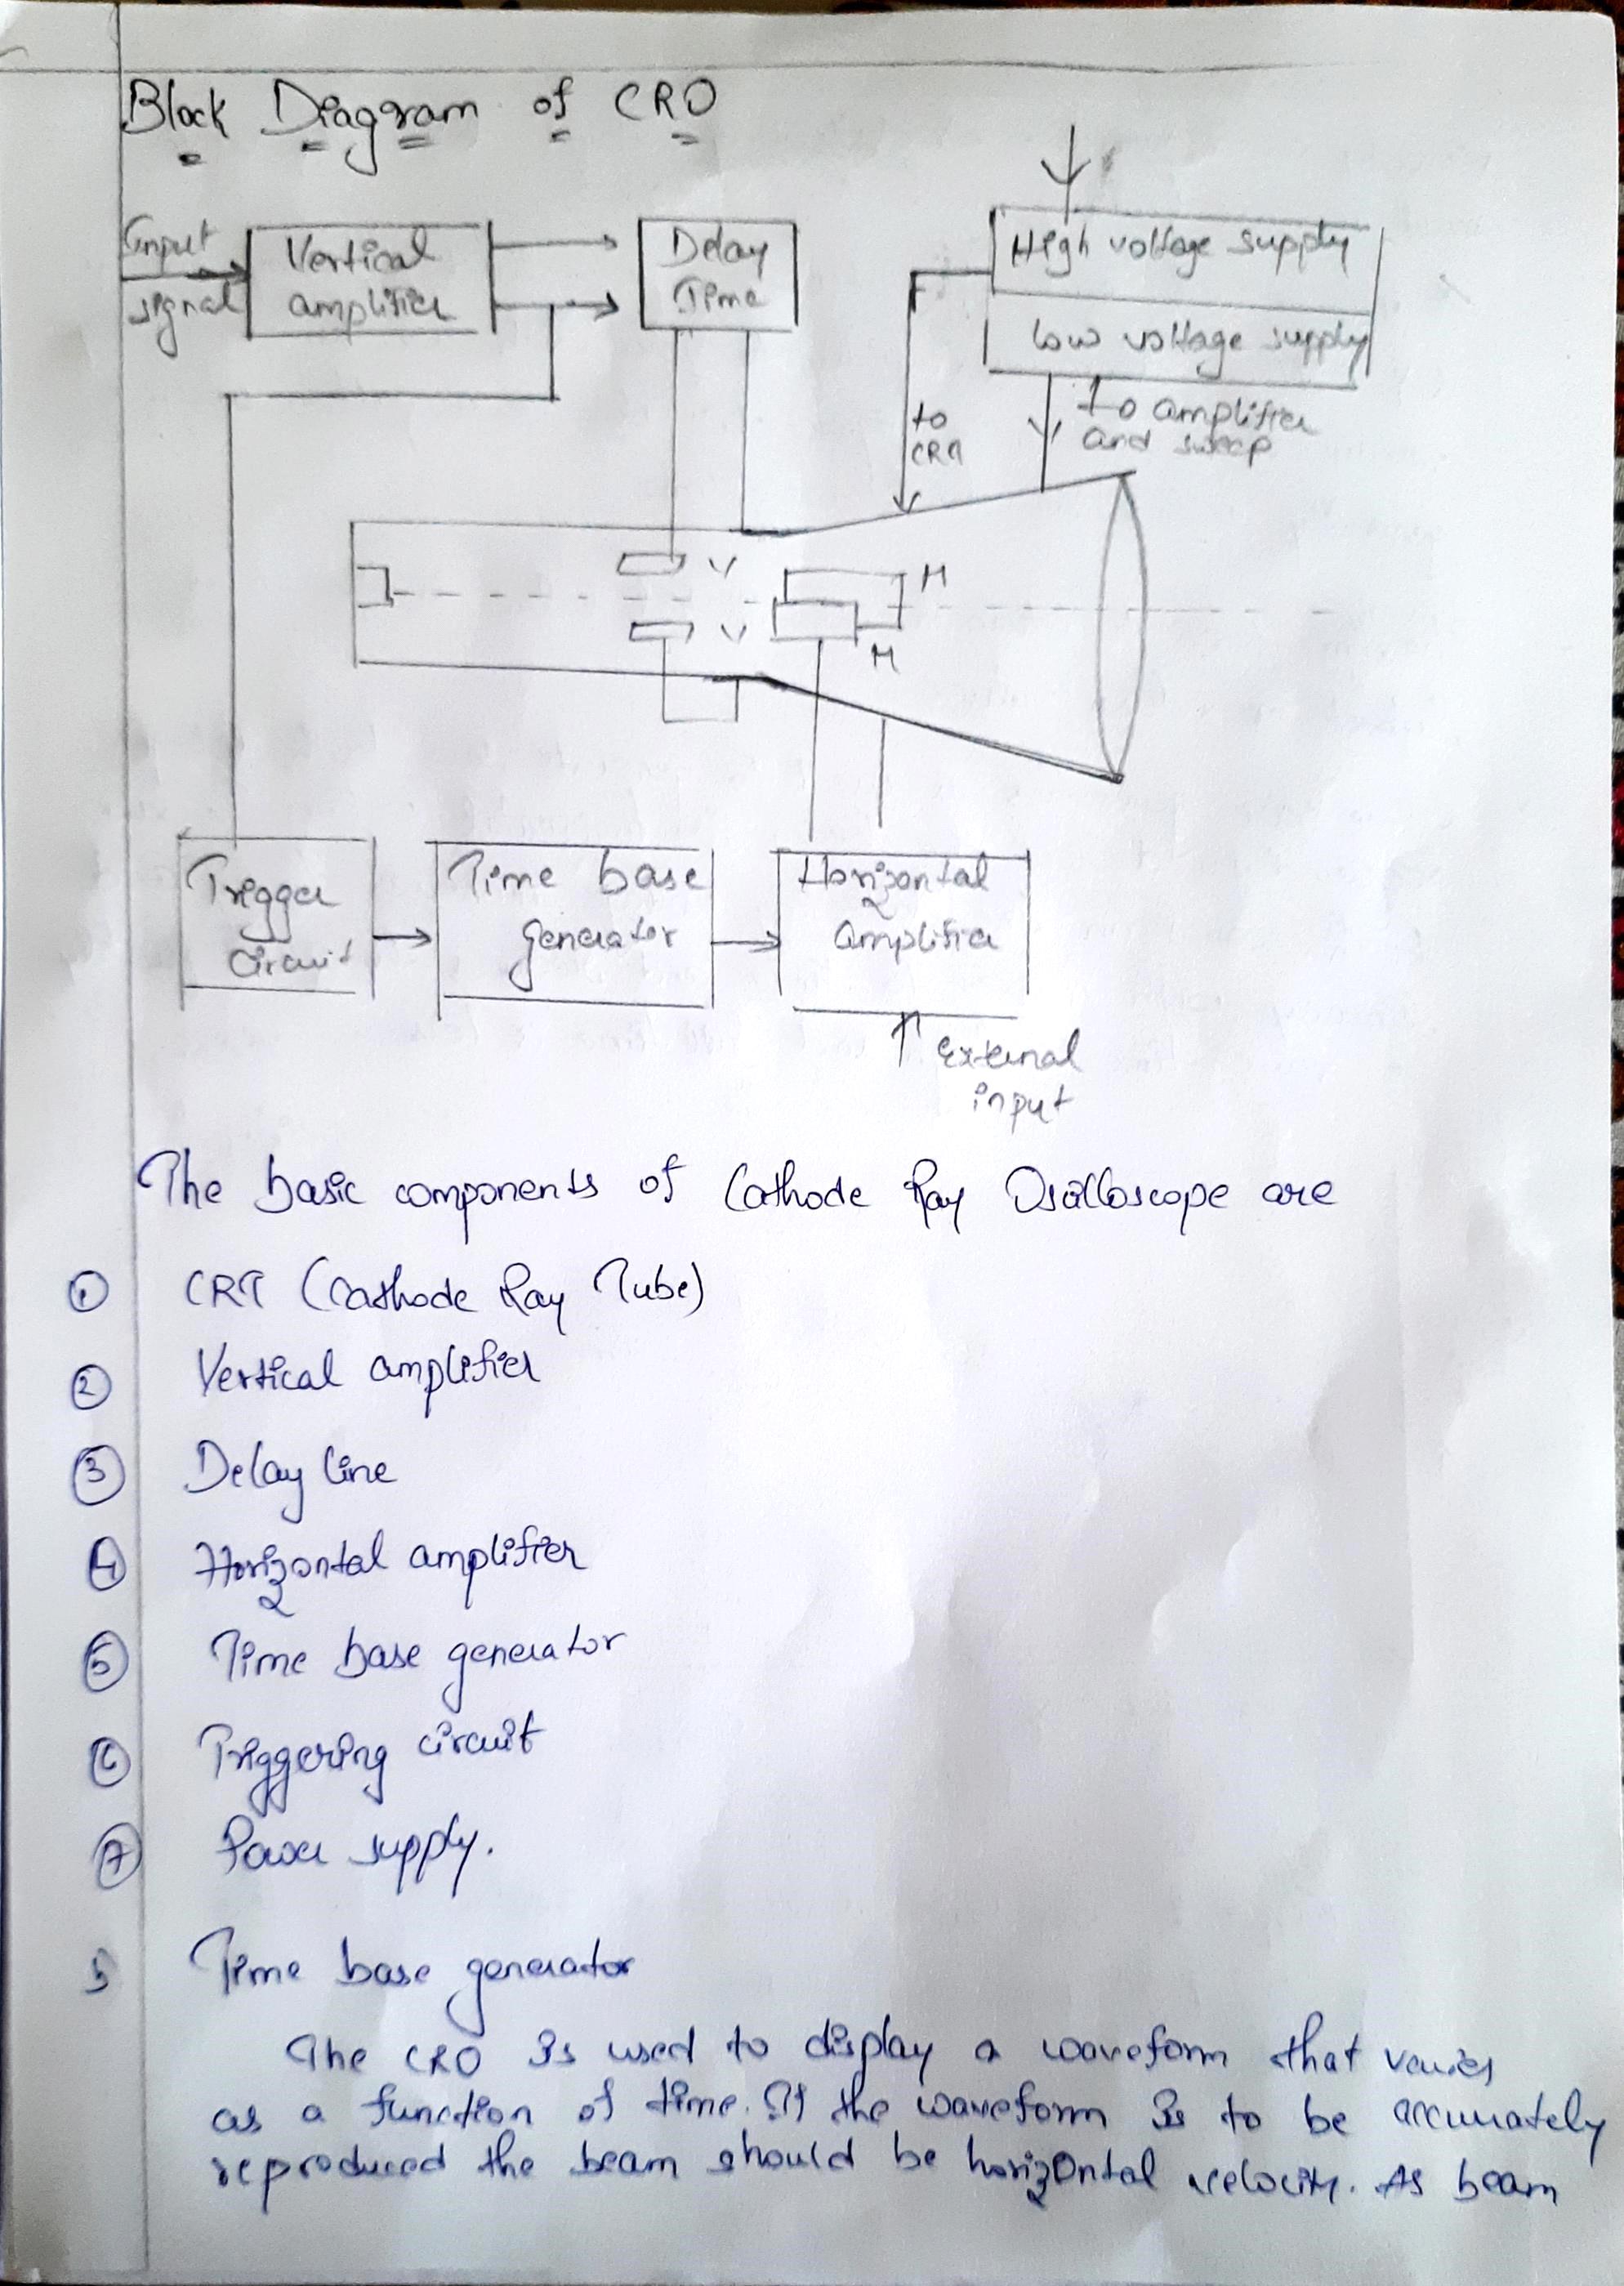 Block Diagram of CRO
Input
signal
Vertical
amplifier
Delay
Time
High voltage supply
low voltage supply
to
CRT
to amplifier
and sweep
V
H
V
H
Trigger
circuit
Time base
generator
Horizontal
amplifier
External
input
The basic components of Cathode Ray Oscilloscope are
1 CRT (Cathode Ray Tube)
2 Vertical amplifier
3 Delay line
4 Horizontal amplifier
5 Time base generator
6 Triggering circuit
7 Power supply.
5 Time base generator
The CRO is used to display a waveform that varies
as a function of time. If the waveform is to be accurately
reproduced the beam should be horizontal velocity. As beam